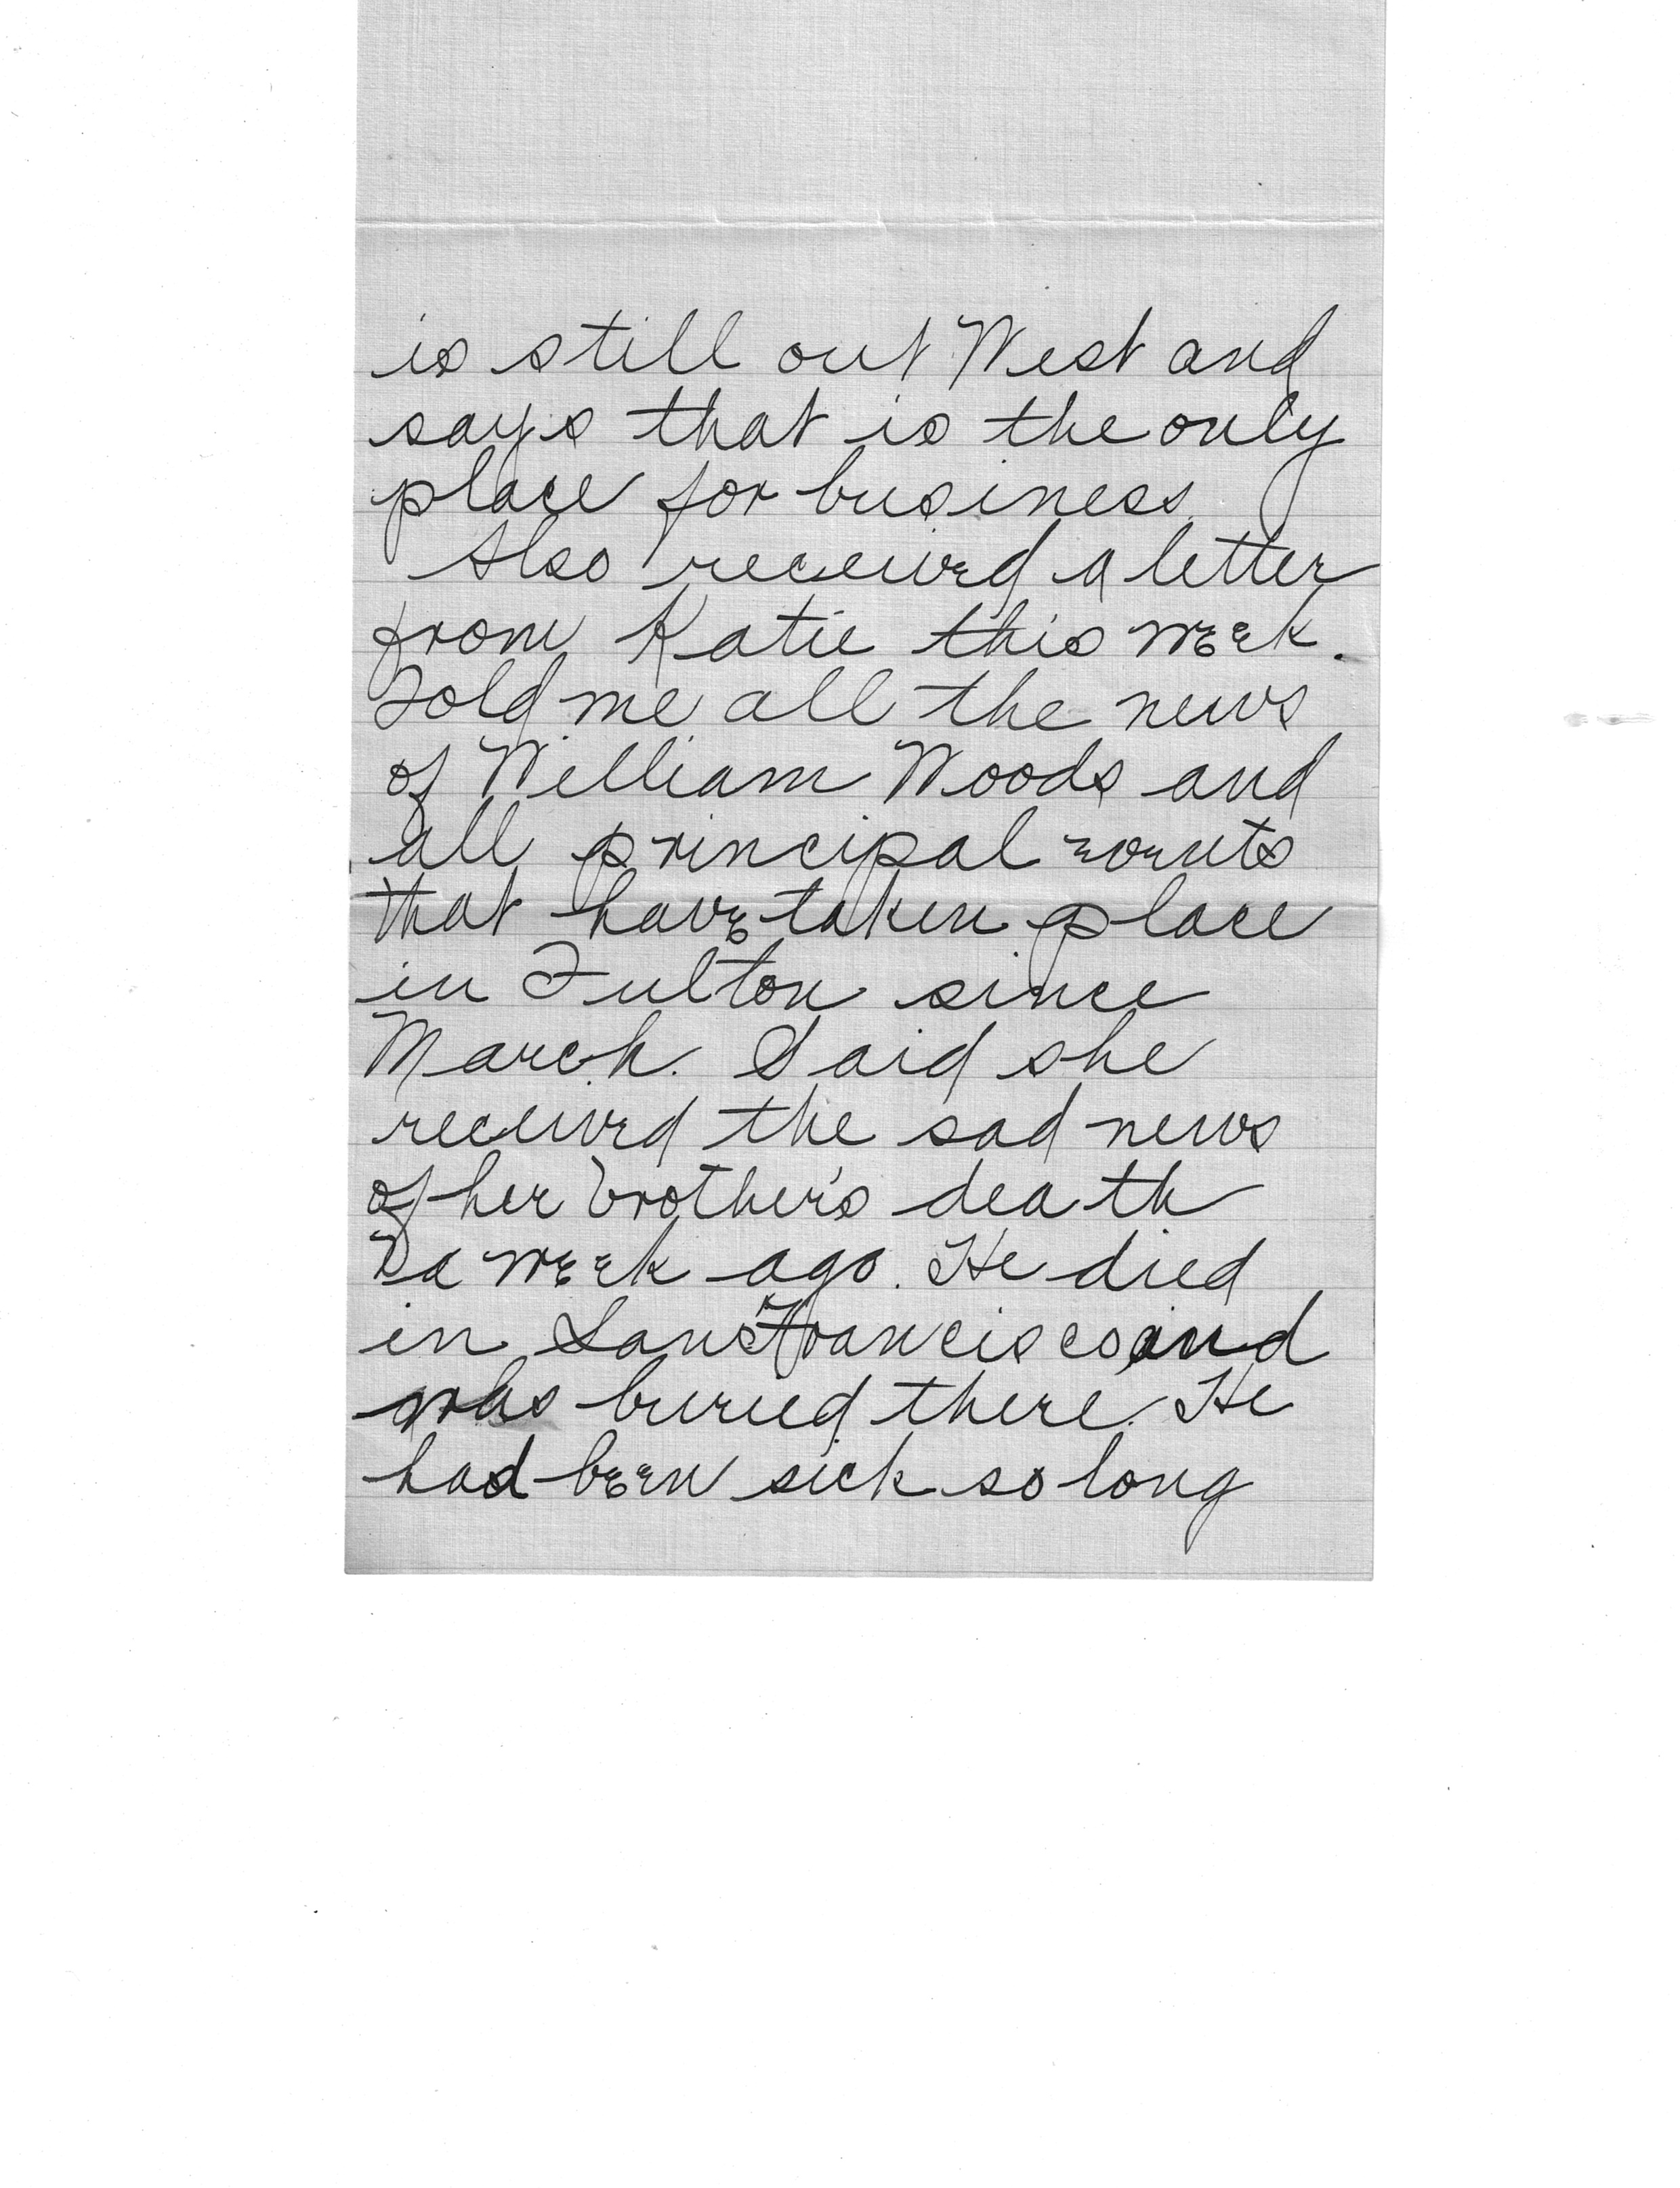 is still out West and
says that is the only
place for business.
Also received a letter
from Katie this week.
Told me all the news
of William Woods and
all principal events
that have taken place
in Fulton since
March. Said she
received the sad news
of her brother's death
a week ago. He died
in San Francisco and
was buried there. He
had been sick so long